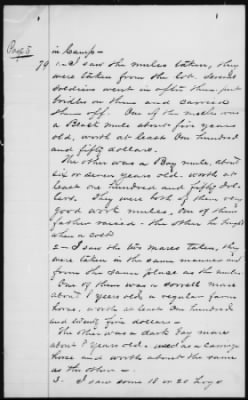 Page 5
in Camp—
79 1— I saw the mules taken, they
were taken from the lot. Several
soldiers went in after them put
bridles on them and carried
them off. One of the mules was
a Black mule about five years
old, worth at least One hundred
and fifty dollars.
The other was a Bay mule, about
six or seven years old. worth at
least one hundred and fifty dol-
lars. They were both of them very
good work mules. One of them
father raised - the other he bought
when a colt
2— I saw the two mares taken, they
were taken in the same manner and
from the same place as the mules
One of them was a sorrell mare
about 8 years old, a regular farm
horse, worth at least One hundred
and twenty five dollars—
The other was a dark bay mare
about 8 years old. used as a carriage
horse and worth about the same
as the other—
3— I saw some 18 or 20 hogs